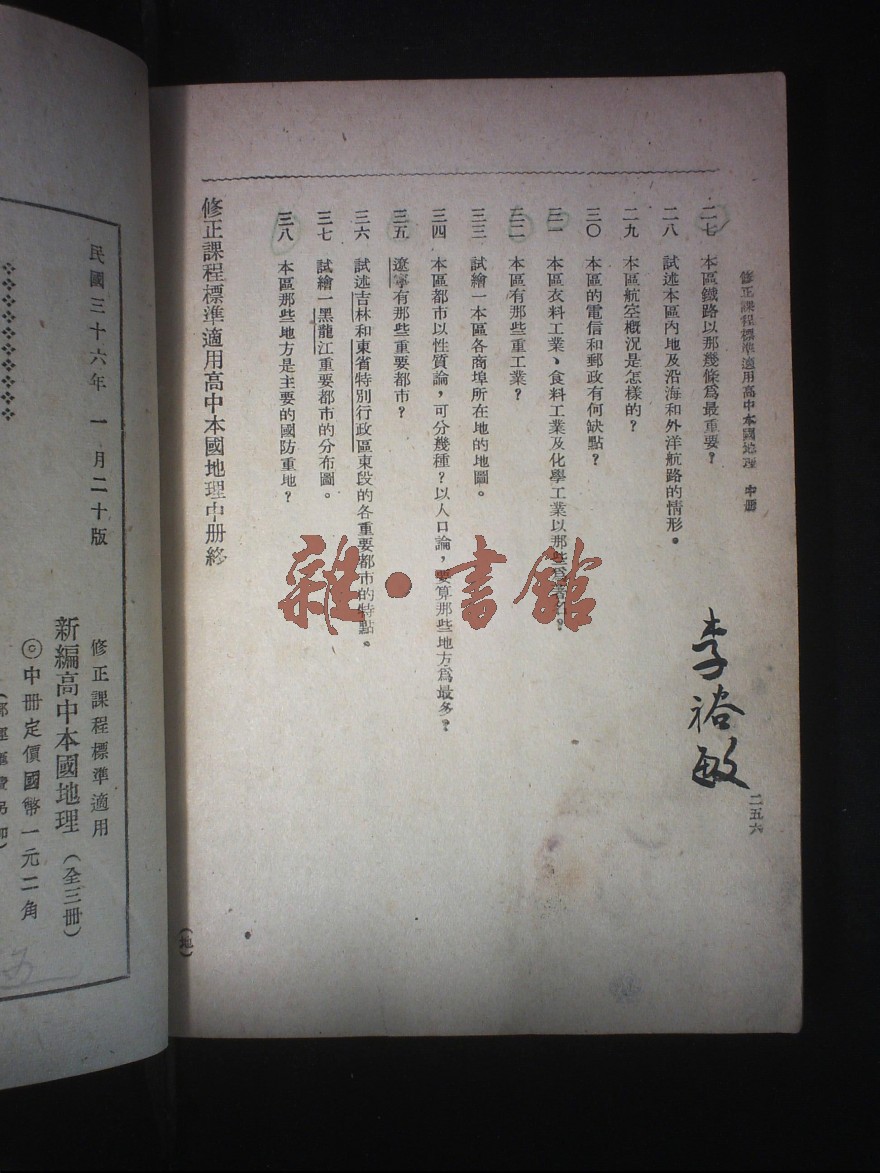 修正課程標準適用高中本國地理　中册
二七　本區鐵路以那幾條爲最重要？
二八　試述本區內地及沿海和外洋航路的情形。
二九　本區航空概況是怎樣的？
三〇　本區的電信和郵政有何缺點？
三一　本區衣料工業、食料工業及化學工業以那些爲著名？
三二　本區有那些重工業？
三三　試繪一本區各商埠所在地的地圖。
三四　本區都市以性質論，可分幾種？以人口論，要算那些地方爲最多？
三五　遼寧有那些重要都市？
三六　試述吉林和東省特別行政區東段的各重要都市的特點。
三七　試繪一黑龍江重要都市的分布圖。
三八　本區那些地方是主要的國防重地？
修正課程標準適用高中本國地理中册終
李裕敏
二五六
（地）
雜·書館
民國三十六年一月二十版
修正課程標準適用
新編高中本國地理（全三冊）
◎中冊定價國幣一元二角